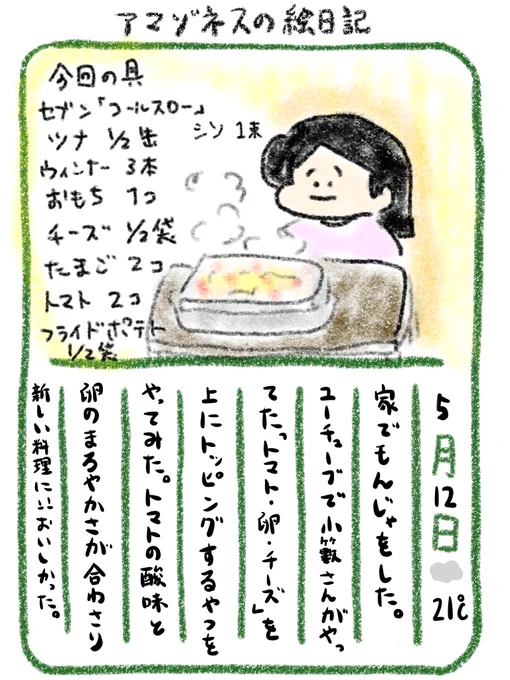 アマゾネスの絵日記
今回の具
セブン「コールスロー」
ツナ 1/2缶
シソ 1束
ウィンナー 3本
おもち 1コ
チーズ 1/2袋
たまご 2コ
トマト 2コ
フライドポテト
1/2袋
5月12日 21℃
家でもんじゃをした。
ユーチューブで小籔さんがやっ
てた「トマト・卵・チーズ」を
上にトッピングするやつを
やってみた。トマトの酸味と
卵のまろやかさが合わさり
新しい料理に!!おいしかった。